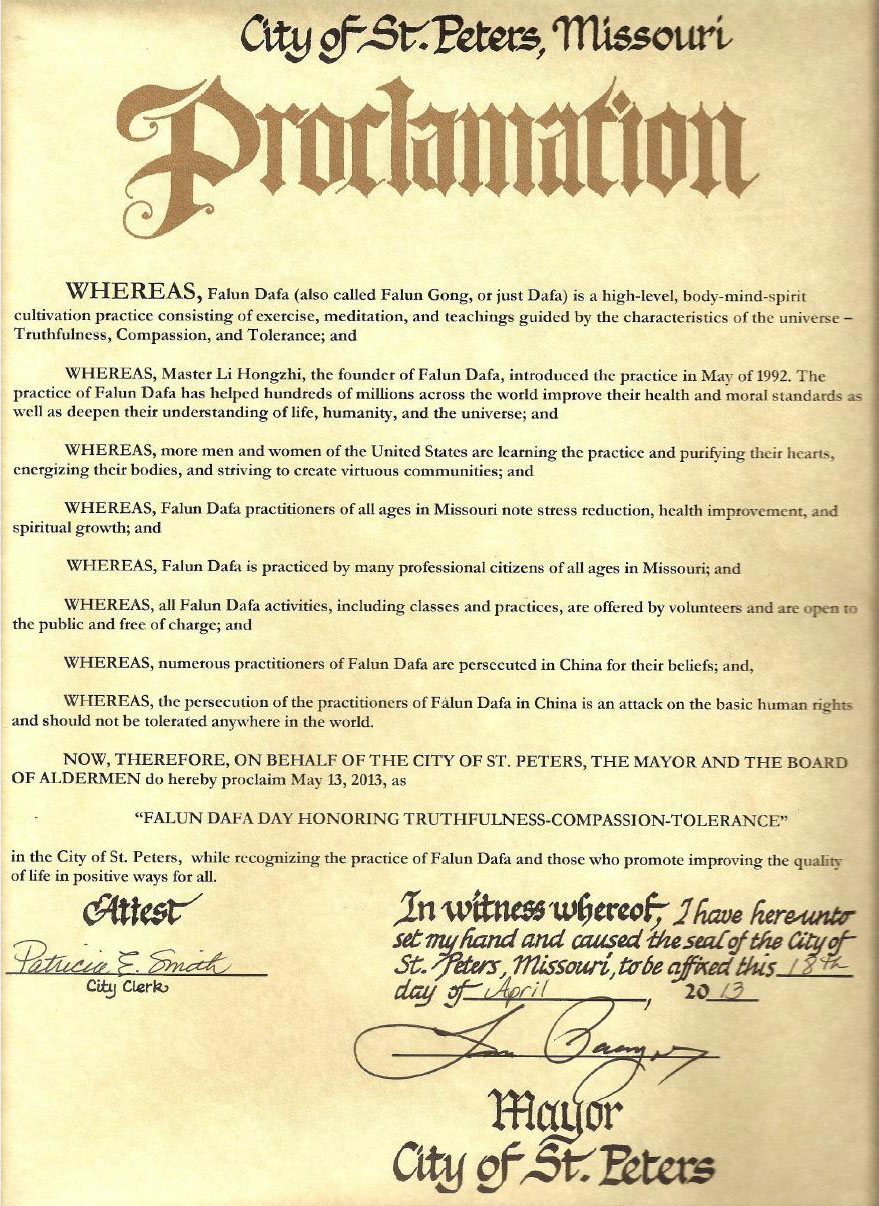 City of St. Peters, Missouri
Proclamation
WHEREAS, Falun Dafa (also called Falun Gong, or just Dafa) is a high-level, body-mind-spirit
cultivation practice consisting of exercise, meditation, and teachings guided by the characteristics of the universe –
Truthfulness, Compassion, and Tolerance; and
WHEREAS, Master Li Hongzhi, the founder of Falun Dafa, introduced the practice in May of 1992. The
practice of Falun Dafa has helped hundreds of millions across the world improve their health and moral standards as
well as deepen their understanding of life, humanity, and the universe; and
WHEREAS, more men and women of the United States are learning the practice and purifying their hearts,
energizing their bodies, and striving to create virtuous communities; and
WHEREAS, Falun Dafa practitioners of all ages in Missouri note stress reduction, health improvement, and
spiritual growth; and
WHEREAS, Falun Dafa is practiced by many professional citizens of all ages in Missouri; and
WHEREAS, all Falun Dafa activities, including classes and practices, are offered by volunteers and are open to
the public and free of charge; and
WHEREAS, numerous practitioners of Falun Dafa are persecuted in China for their beliefs; and,
WHEREAS, the persecution of the practitioners of Falun Dafa in China is an attack on the basic human rights
and should not be tolerated anywhere in the world.
NOW, THEREFORE, ON BEHALF OF THE CITY OF ST. PETERS, THE MAYOR AND THE BOARD
OF ALDERMEN do hereby proclaim May 13, 2013, as
“FALUN DAFA DAY HONORING TRUTHFULNESS-COMPASSION-TOLERANCE”
in the City of St. Peters, while recognizing the practice of Falun Dafa and those who promote improving the quality
of life in positive ways for all.
Attest
Patricia E. Smith
City Clerk
In witness whereof, I have hereunto
set my hand and caused the seal of the City of
St. Peters, Missouri, to be affixed this 18th
day of April, 2013
Mayor
City of St. Peters